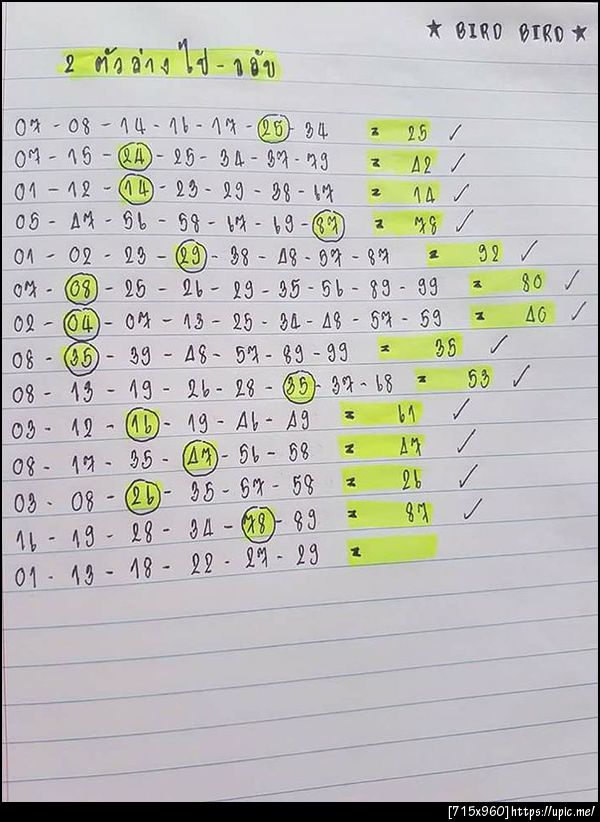 ★ BIRD BIRD ★
2 ตัวล่าง ไป - กลับ
07 - 08 - 14 - 16 - 17 - 25 - 34 = 25 ✓
07 - 15 - 24 - 25 - 34 - 37 - 79 = 42 ✓
01 - 12 - 14 - 23 - 29 - 38 - 67 = 14 ✓
05 - 47 - 56 - 58 - 67 - 69 - 87 = 78 ✓
01 - 02 - 23 - 29 - 38 - 48 - 57 - 87 = 92 ✓
07 - 08 - 25 - 26 - 29 - 35 - 56 - 89 - 99 = 80 ✓
02 - 04 - 07 - 13 - 25 - 34 - 48 - 57 - 59 = 40 ✓
08 - 35 - 39 - 48 - 57 - 89 - 99 = 35 ✓
08 - 13 - 19 - 26 - 28 - 35 - 37 - 68 = 53 ✓
03 - 12 - 16 - 19 - 46 - 49 = 61 ✓
08 - 17 - 35 - 47 - 56 - 58 = 47 ✓
03 - 08 - 26 - 35 - 57 - 58 = 26 ✓
16 - 19 - 28 - 34 - 78 - 89 = 87 ✓
01 - 13 - 18 - 22 - 27 - 29 =
[715x960]https://upic.me/